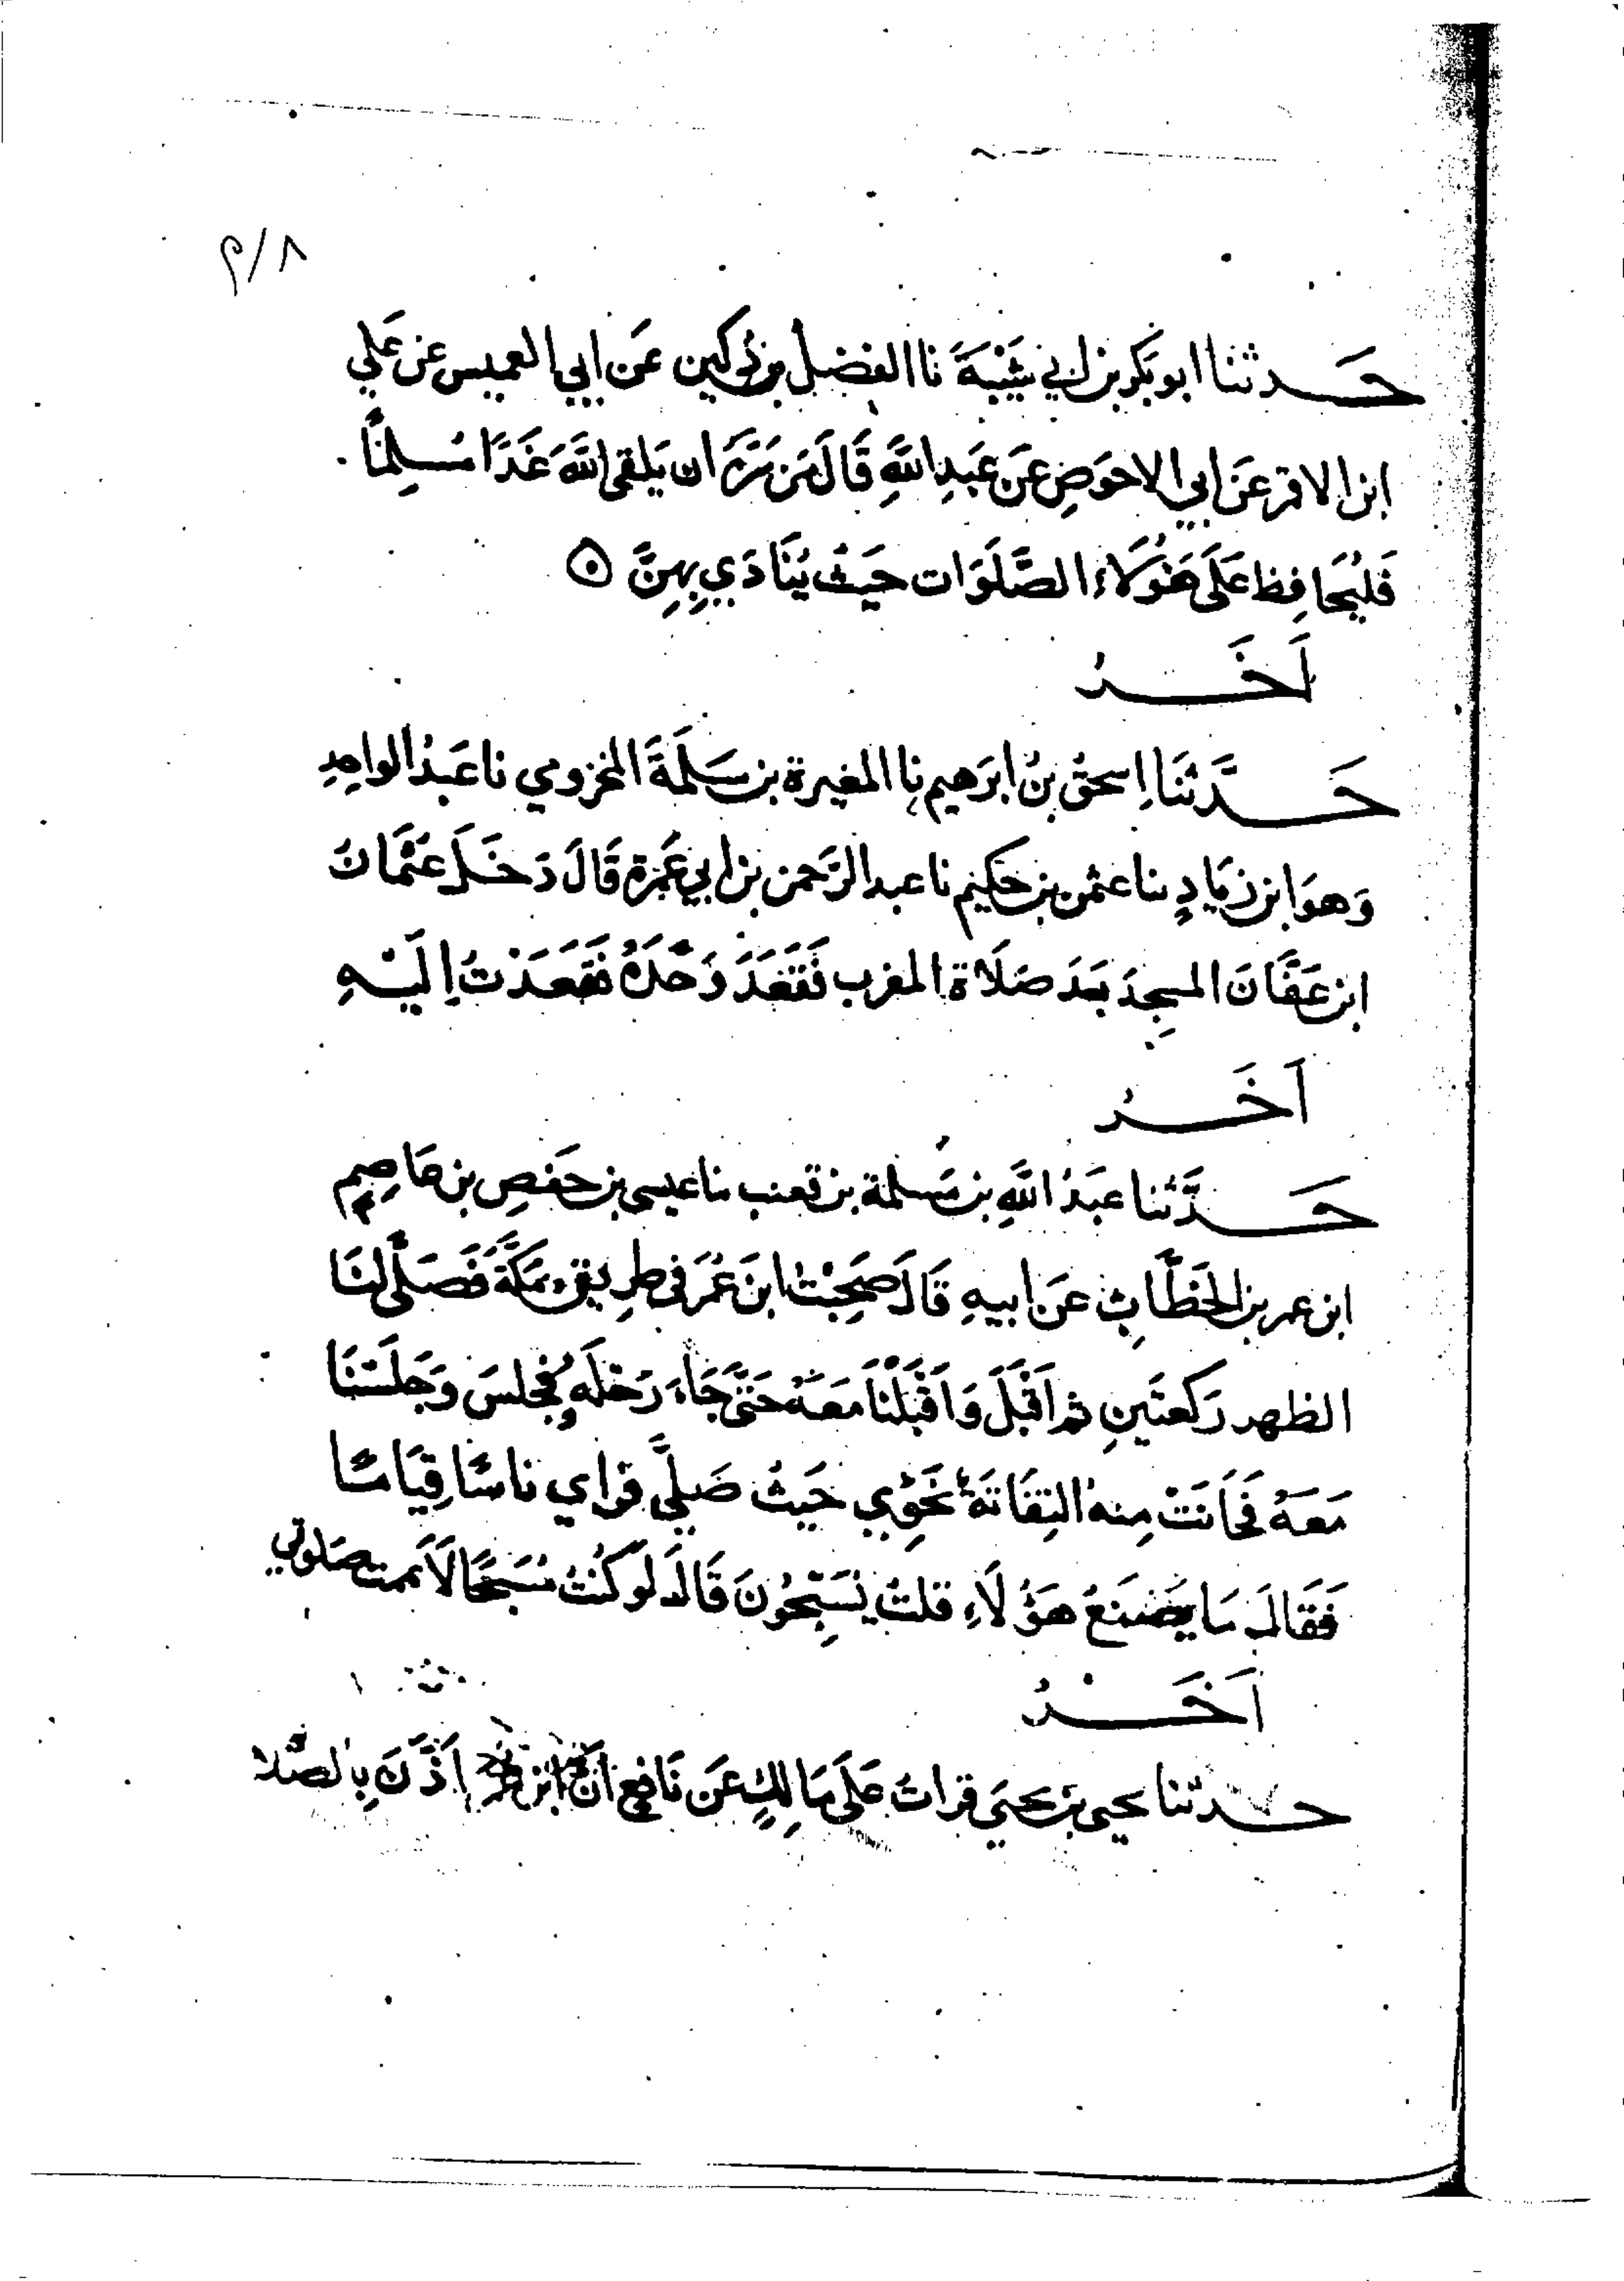 م/٨
حَدثنا ابو بَكر بن ابي شَيْبَةَ نا الفضل بن دكين عَن ابي العميس عن عَلي
ابن الاقمر عَن ابي الاحوَصِ عَن عَبدِ اللَّهِ قَالَ مَن سَرَّهُ ان يَلقى اللَّهَ غَدًا مُسلِمًا
فَليُحَافِظ عَلَى هَؤُلَاءِ الصَّلَوَات حَيثُ يُنَادَي بِهِنَّ
اَخَرُ
حَدَّثَنَا اِسحقُ بنُ ابرَهيم نا المغيرة بن سَلَمَةَ المخزومي نا عَبدُ الواحِدِ
وَهوَ ابن زيَادٍ نا عثمن بن حَكيم نا عبد الرَّحمن بن ابي عَمرَة قَالَ دَخَلَ عُثمَانُ
ابن عَفَّانَ المسجِدَ بَعدَ صَلَاة المغرب فَقَعَدَ وَحْدَهُ فَقَعَدْتُ اِلَيْهِ
اَخَرُ
حَدَّثنا عَبدُ اللَّهِ بن مَسلمة بن قعنب نا عيسى بن حَفصِ بن عَاصِمِ
ابن عمر بن الخَطَّابِ عَن ابيهِ قَالَ صَحِبْتُ ابنَ عُمَرَ فى طرِيق مَكَّةَ فَصَلَّى لنَا
الظهر رَكعتَينِ ثم اَقبَلَ وَاَقْبَلْنَا مَعَهُ حَتَّى جَاءَ رَحْلَهُ فجَلسَ وَجَلَسْنَا
مَعَهُ فَحَانَتْ مِنهُ التِفَاتَةٌ نَحْوِي حَيثُ صَلَّى فراي نَاسًا قِيَامًا
فَقَالَ مَا يَصْنَعُ هَؤُلَاءِ قلتُ يُسَبِّحُونَ قَالَ لو كُنتُ مُسَبِّحًا لَاَتممت صَلَوتي
اَخَرُ
حَدثنا يحيى بن يَحيَى قرات عَلَى مَالِكٍ عَن نَافِع اَنَّ ابن عمر اَذَّنَ بِالصَّلا